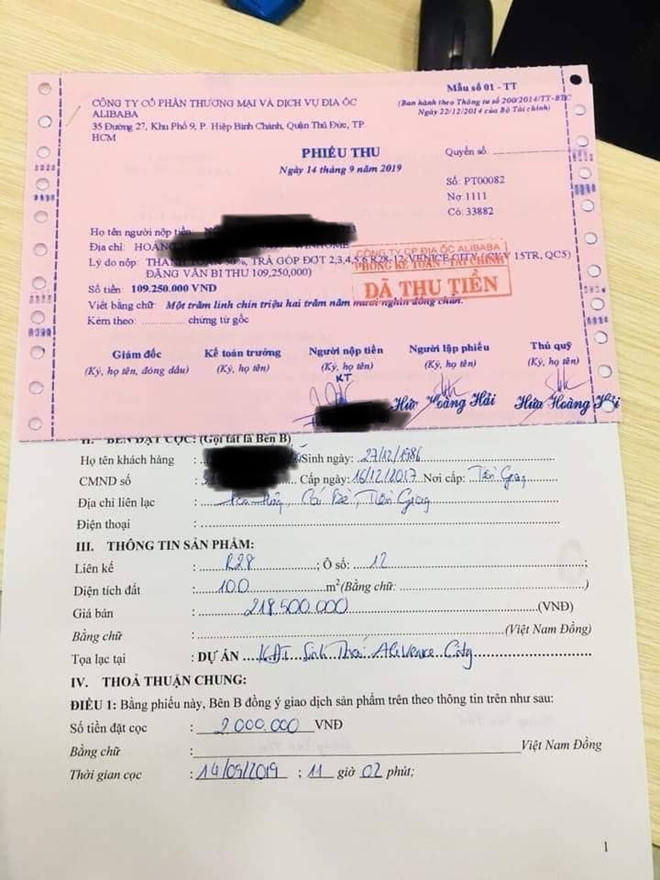 CÔNG TY CỔ PHẦN THƯƠNG MẠI VÀ DỊCH VỤ ĐỊA ỐC
ALIBABA
35 Đường 27, Khu Phố 9, P. Hiệp Bình Chánh, Quận Thủ Đức, TP.
HCM
Mẫu số 01 - TT
(Ban hành theo Thông tư số 200/2014/TT-BTC
Ngày 22/12/2014 của Bộ Tài chính)
PHIẾU THU
Ngày 14 tháng 9 năm 2019
Quyển số:
Số: PT00082
Nợ: 1111
Có: 33882
Họ tên người nộp tiền
Địa chỉ: HOÀNG
Lý do nộp: THANH TOÁN 50%, TRẢ GÓP ĐỢT 2,3,4,5,6 R28-12 VENICE CITY 15TR, QC5)
ĐẶNG VĂN BI THU 109,250,000)
CÔNG TY CP ĐỊA ỐC ALIBABA
PHÒNG KẾ TOÁN - TÀI CHÍNH
ĐÃ THU TIỀN
Số tiền: 109.250.000 VND
Viết bằng chữ: Một trăm linh chín triệu hai trăm năm mươi nghìn đồng chẵn.
Kèm theo: ............ chứng từ gốc
Giám đốc Kế toán trưởng Người nộp tiền Người lập phiếu Thủ quỹ
(Ký, họ tên, đóng dấu) (Ký, họ tên) (Ký, họ tên) (Ký, họ tên) (Ký, họ tên)
KT
Hứa Hoàng Hải Hứa Hoàng Hải
II. BÊN ĐẶT CỌC: (Gọi tắt là Bên B)
Họ tên khách hàng : Sinh ngày: 27/12/1986
CMND số : Cấp ngày: 16/12/2017 Nơi cấp: Tiền Giang
Địa chỉ liên lạc : Cái Bè, Tiền Giang
Điện thoại :
III. THÔNG TIN SẢN PHẨM:
Liên kế : R28 ; Ô số: 12 ;
Diện tích đất : 100 m² (Bằng chữ: )
Giá bán : 218.500.000 (VNĐ)
Bằng chữ : (Việt Nam Đồng)
Tọa lạc tại : DỰ ÁN KĐT Sinh Thái Ali Venice City
IV. THOẢ THUẬN CHUNG:
ĐIỀU 1: Bằng phiếu này, Bên B đồng ý giao dịch sản phẩm trên theo thông tin trên như sau:
Số tiền đặt cọc : 2.000.000 VNĐ
Bằng chữ : Việt Nam Đồng
Thời gian cọc : 14/09/2019 ; 11 giờ 02 phút;
1